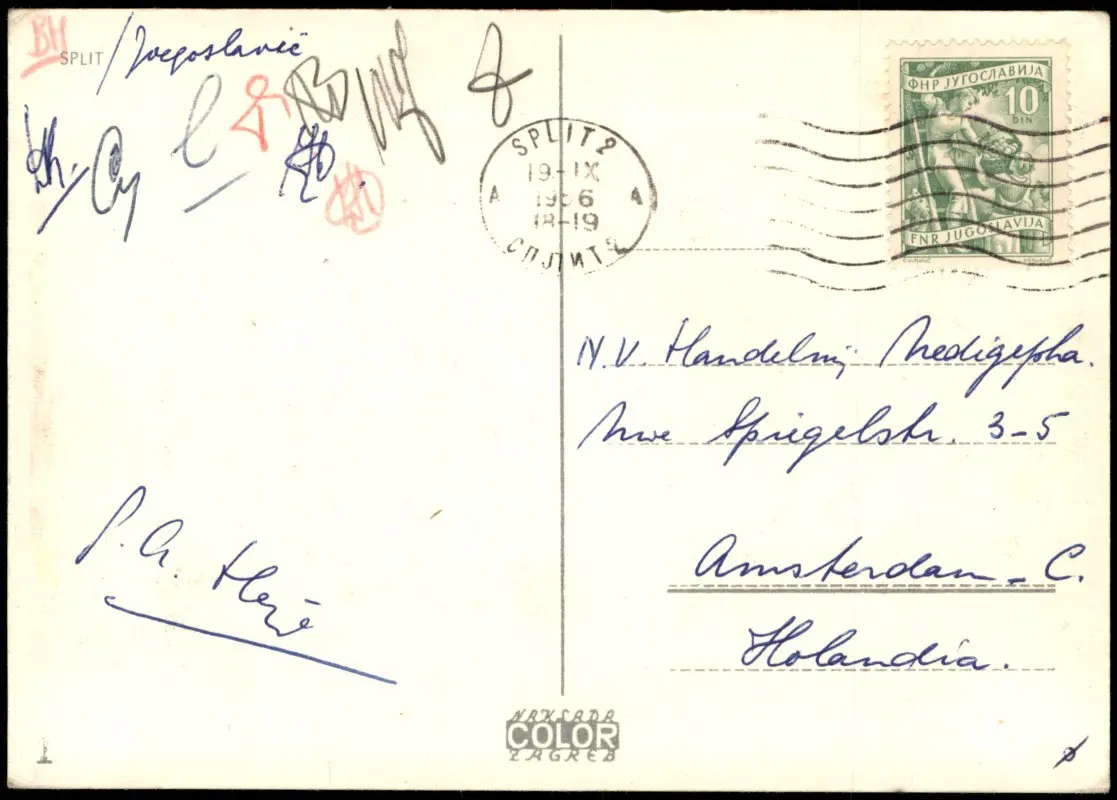 BH
SPLIT / Joegoslavië
SPLIT 2
19-IX
1956
18-19
A A
СПЛИТ 2
ФНР ЈУГОСЛАВИЈА
10
DIN
FNR JUGOSLAVIJA
N.V. Handelmij Nedigepha.
Nwe Spiegelstr. 3-5
Amsterdam - C.
Holandia.
P. A.
NAKLADA
COLOR
ZAGREB
1